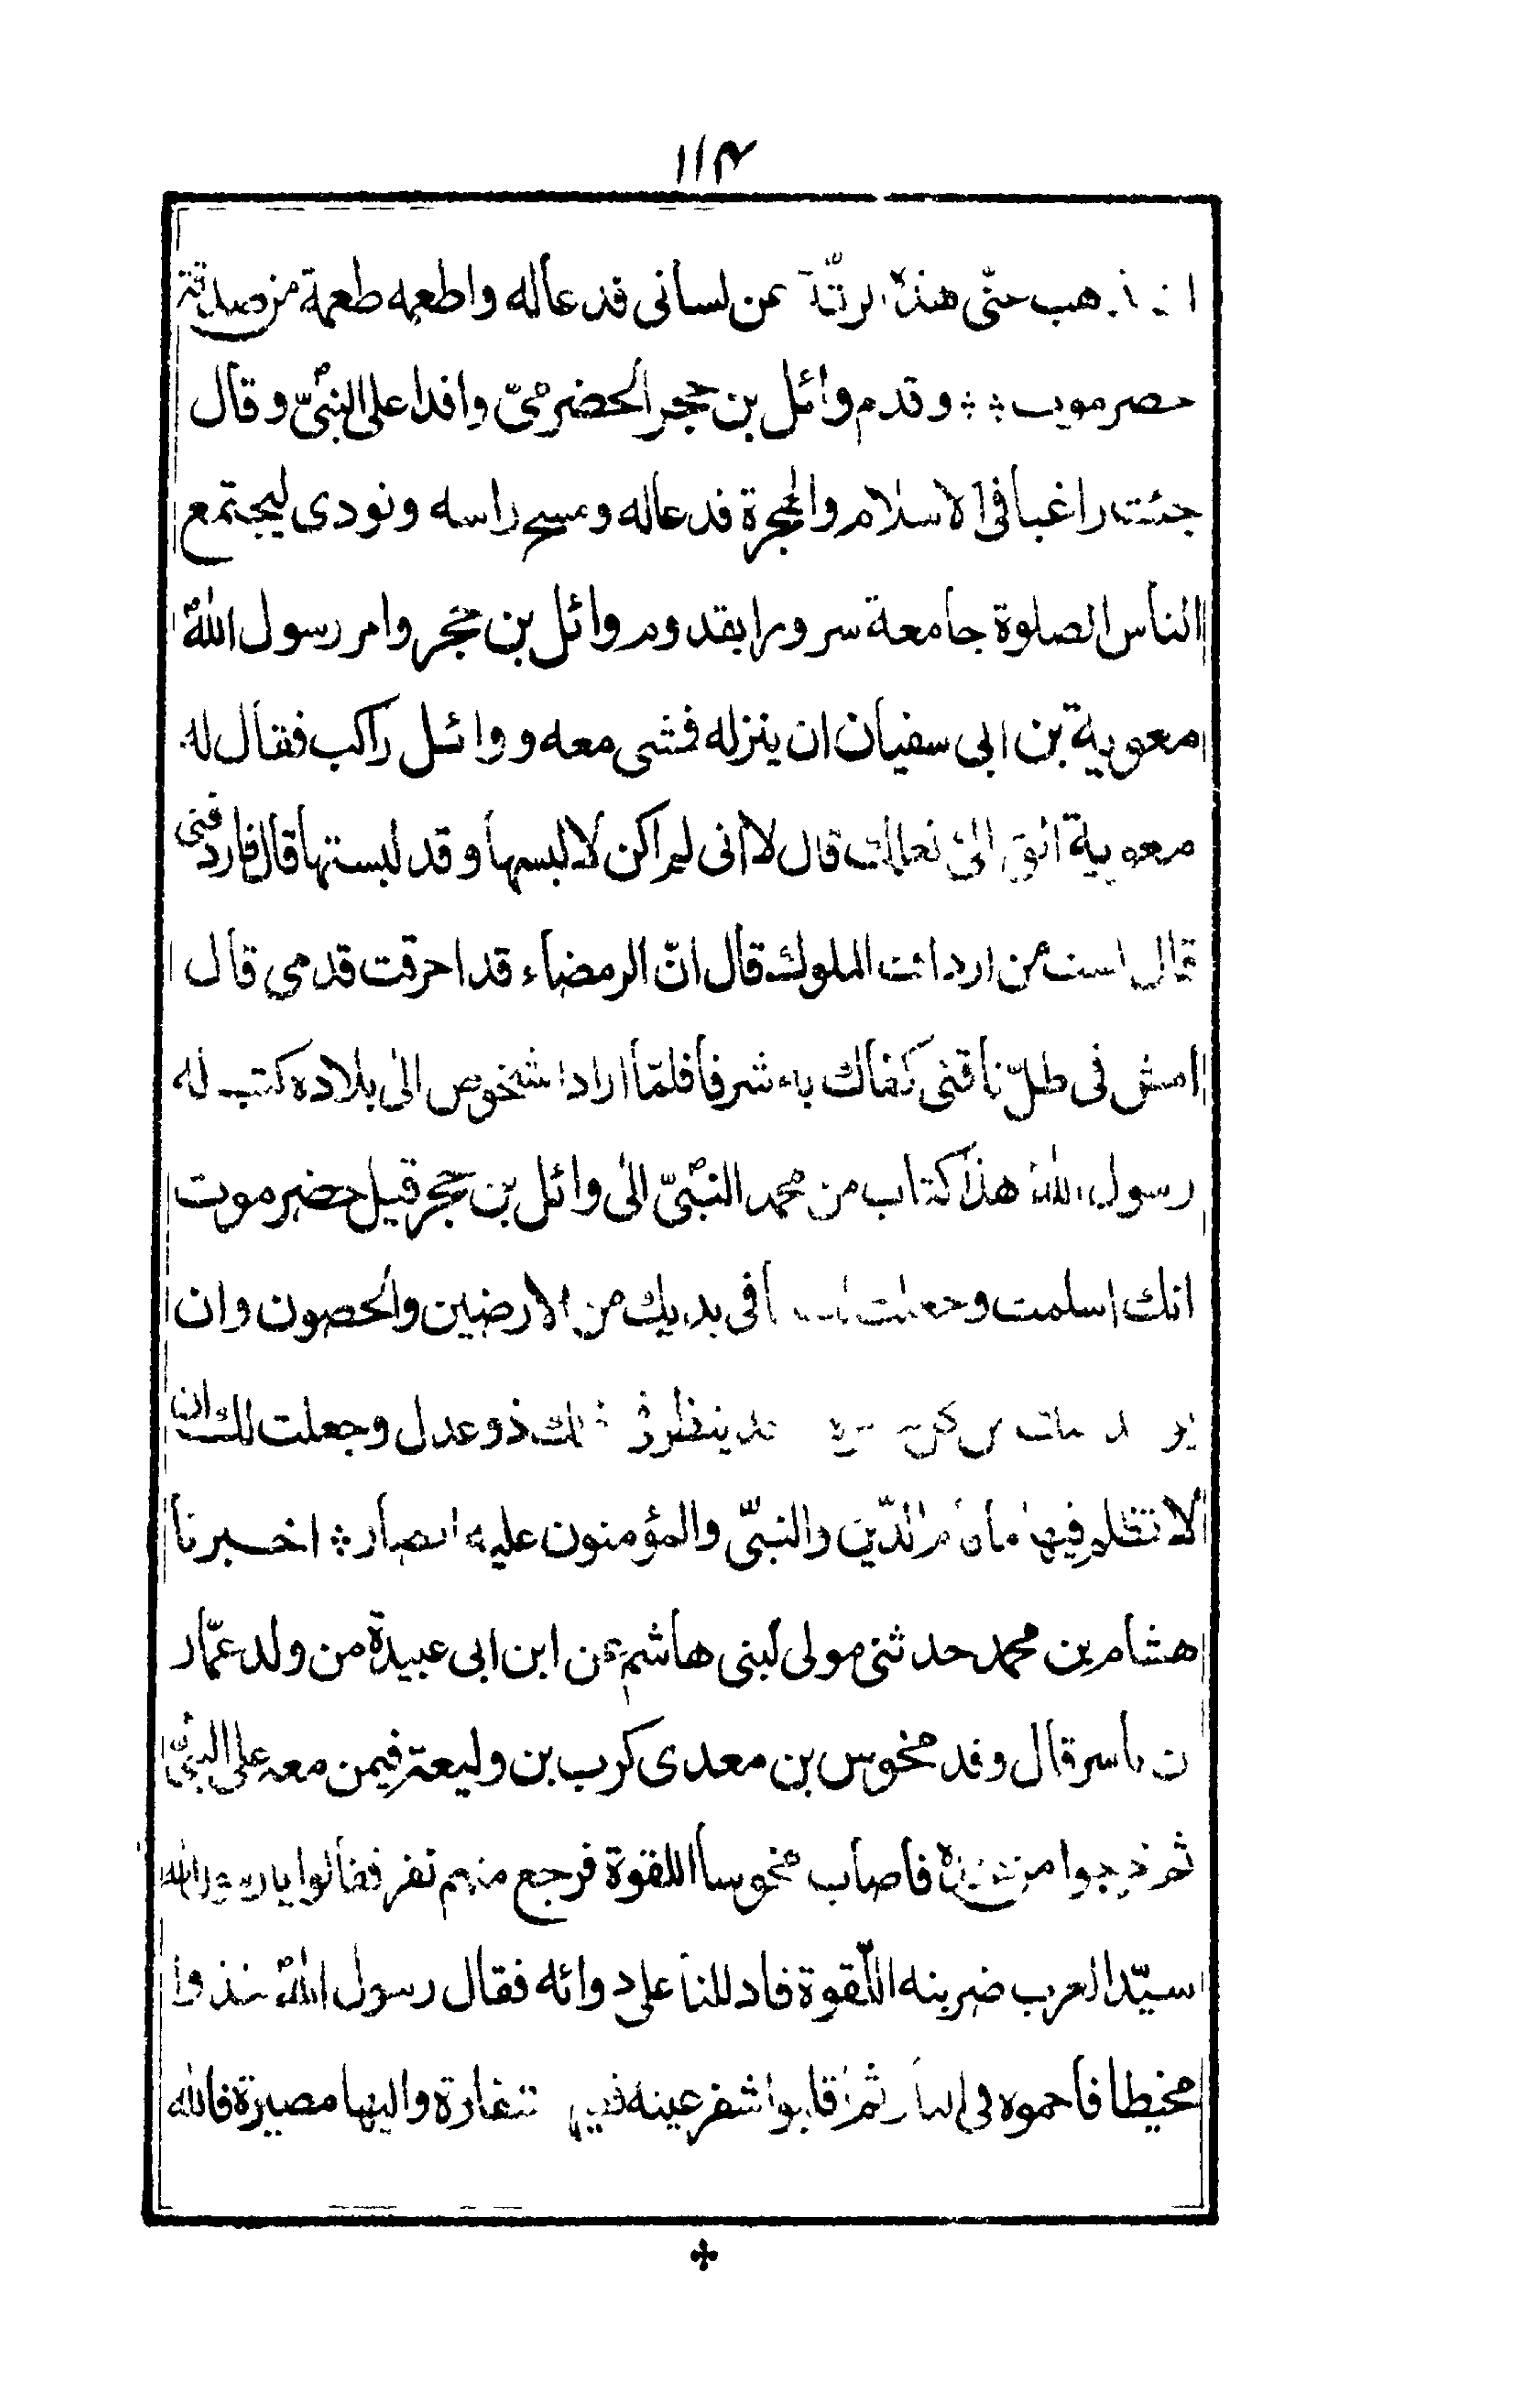 ١١٤
هب عنّى هذه الرتّة عن لسانى فدعا له واطعمه طعمة من صدقة
حضرموت ؞ وقدم وائل بن حجر الحضرمىّ وافدا على النبىّ وقال
جئت راغبا فى الاسلام والهجرة فدعا له ومسح راسه ونودى ليجتمع
الناس الصلوة جامعة سرورا بقدوم وائل بن حجر وامر رسول الله
معوية بن ابى سفيان ان ينزله فمشى معه ووائل راكب فقال له
معوية الق الىّ نعلك قال لا انى لم اكن لالبسها وقد لبستها قال فاردفنى
قال لست من ارداف الملوك قال انّ الرمضاء قد احرقت قدمى قال
امش فى ظلّ ناقتى كفاك به شرفا فلمّا اراد الشخوص الى بلاده كتب له
رسول الله هذا كتاب من محمد النبىّ الى وائل بن حجر قيل حضرموت
انك اسلمت وجعلت لك ما فى يديك من الارضين والحصون وان
ينظر فى ذلك ذو عدل وجعلت لك ان
لا تظلم فيها ما قام الدّين والنبىّ والمؤمنون عليه انصار ؞ اخبرنا
هشام بن محمد حدثنى مولى لبنى هاشم عن ابن ابى عبيدة من ولد عمّار
بن ياسر قال وفد مخوس بن معدى كرب بن وليعة فيمن معه على النبىّ
ثم خرجوا من عنده فاصاب مخوسا اللقوة فرجع منهم نفر فقالوا يا رسول الله
سيّد العرب ضربته اللّقوة فادللنا على دوائه فقال رسول الله خذوا
مخيطا فاحموه فى النار ثم اقلبوا شفر عينه ففيها شفاؤه واليها مصيره فالله